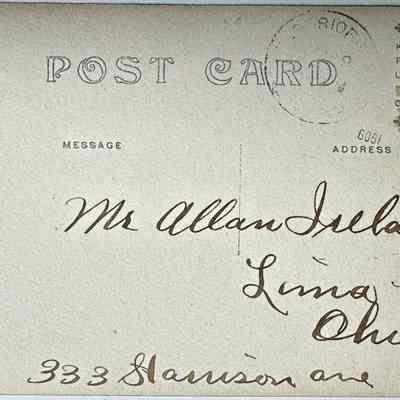 POST CARD
RIOR
MESSAGE
ADDRESS
Mr Allan Irela
Lima
Ohi
333 Harrison ave